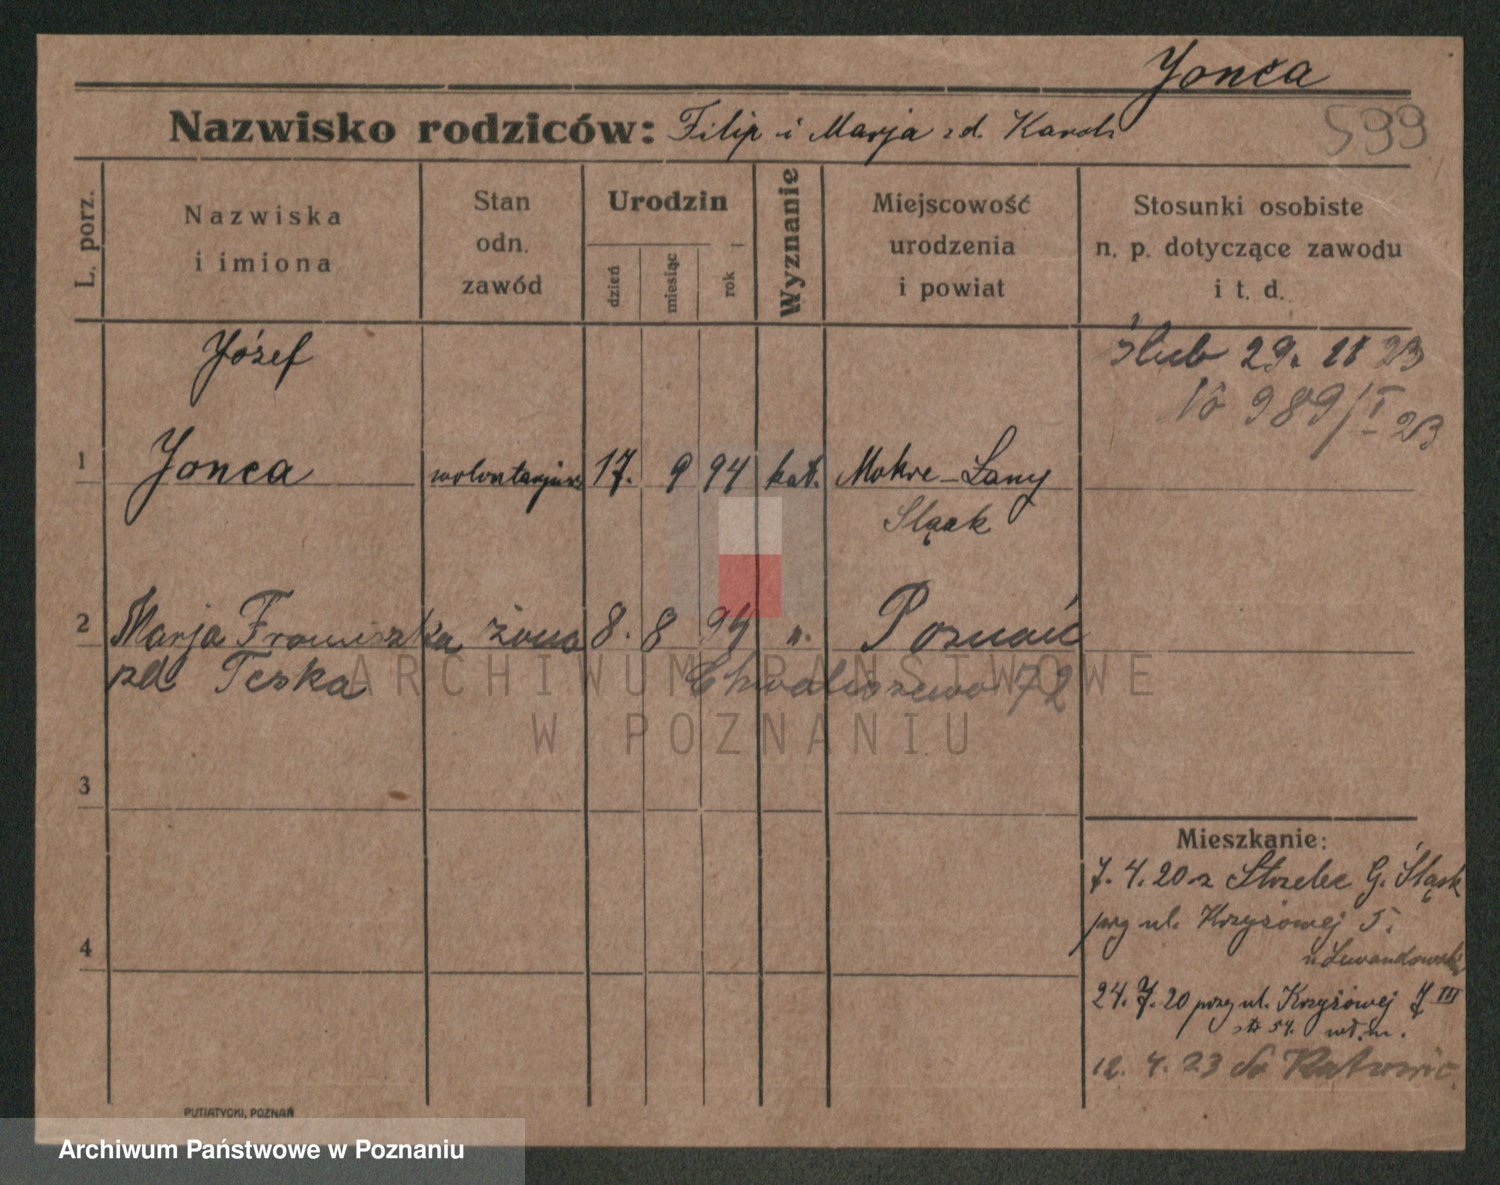 Jonca
599
Nazwisko rodziców: Filip i Marja zd. Karch
L. porz.
Nazwiska
i imiona
Stan
odn.
zawód
Urodzin
dzień
miesiąc
rok
Wyznanie
Miejscowość
urodzenia
i powiat
Stosunki osobiste
n. p. dotyczące zawodu
i t. d.
ślub 29. 11 23
No 989/I 23
Józef
1 Jonca wolontarjusz 17. 9 94 kat. Mokre-Łany
Śląsk
2 Marja Franciszka żona 8. 8 94 ". Poznań
zd Teska Chwaliszewo 72
3
4
Mieszkanie:
7. 4. 20 z Strzelec G. Śląsk
przy ul. Krzyżowej 5.
u Lewandowski
24. 7. 20 przy ul. Krzyżowej 7 III
54. m.
12. 4. 23 do Katowic.
PUTIATYCKI, POZNAŃ
ARCHIWUM PAŃSTWOWE
W POZNANIU
Archiwum Państwowe w Poznaniu